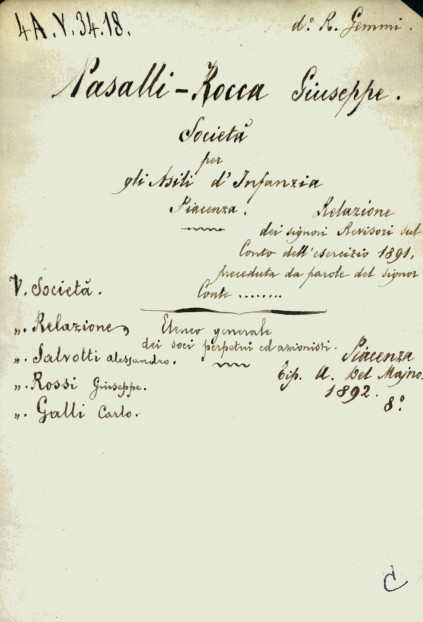 4A.V.34.18.
d.º R. Gemmi.
Nasalli-Rocca Giuseppe.
Società
per
gli Asili d'Infanzia
Piacenza.
Relazione
dei signori Revisori sul
Conto dell'esercizio 1891,
preceduta da parole del signor
Conte ........
V. Società.
„. Relazione,
„. Salvotti Alessandro.
„. Rossi Giuseppe.
„. Galli Carlo.
Elenco generale
dei soci perpetui ed azionisti.
Piacenza
Tip. A. Del Majno.
1892.
8.º
C